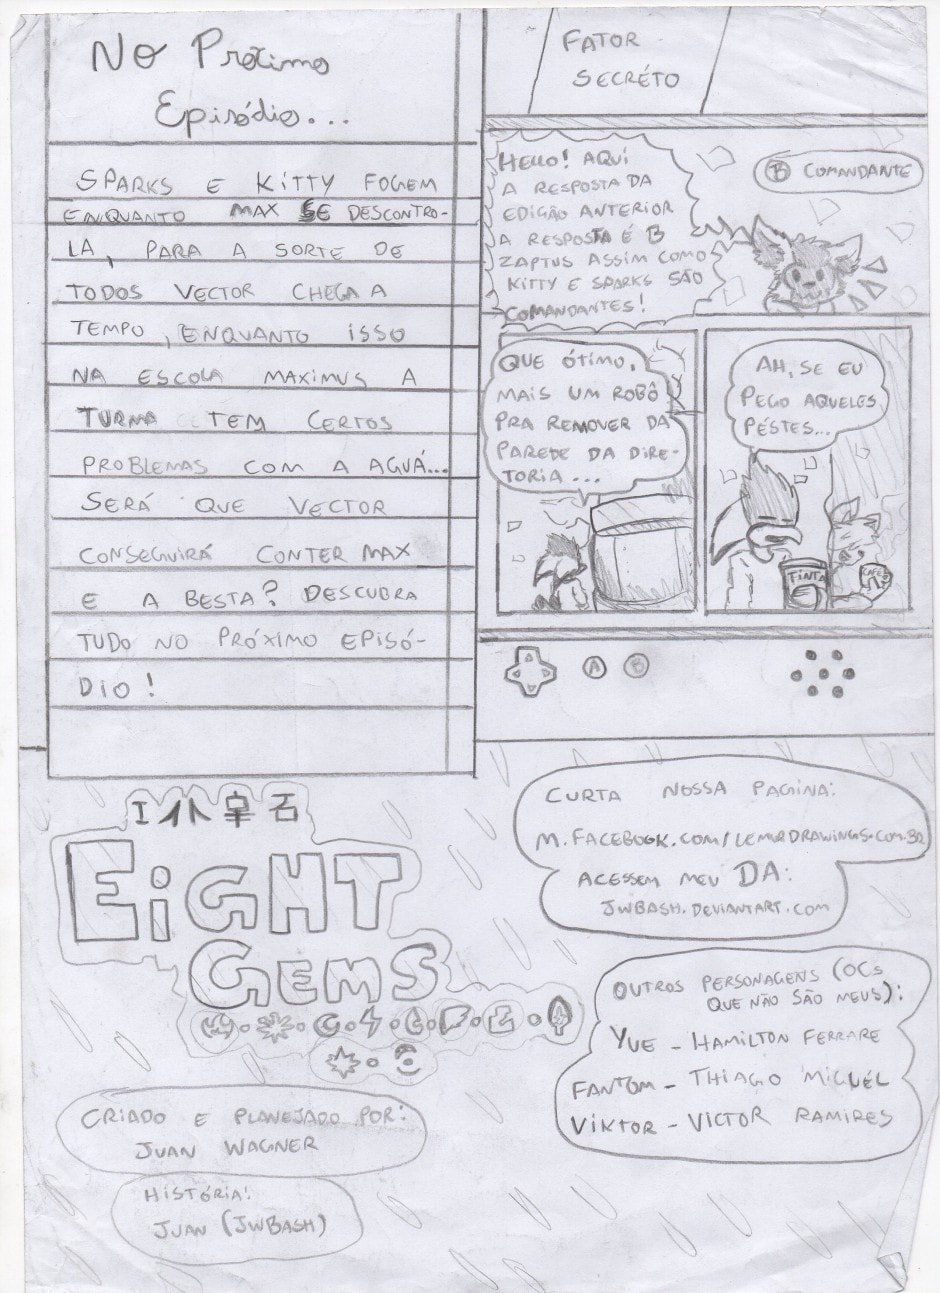 No Próximo
Episódio...
SPARKS E KITTY FOGEM
ENQUANTO MAX SE DESCONTRO-
LA, PARA A SORTE DE
TODOS VECTOR CHEGA A
TEMPO, ENQUANTO ISSO
NA ESCOLA MAXIMUS A
TURMA TEM CERTOS
PROBLEMAS COM A AGUÁ...
SERÁ QUE VECTOR
CONSEGUIRÁ CONTER MAX
E A BESTA? DESCUBRA
TUDO NO PRÓXIMO EPISÓ-
DIO!
FATOR
SECRÉTO
HELLO! AQUI
A RESPOSTA DA
EDIÇÃO ANTERIOR
A RESPOSTA É B
ZAPTUS ASSIM COMO
KITTY E SPARKS SÃO
COMANDANTES!
B COMANDANTE
QUE ÓTIMO,
MAIS UM ROBÔ
PRA REMOVER DA
PAREDE DA DIRE-
TORIA...
AH, SE EU
PEGO AQUELES
PÉSTES...
TINTA
CAFÉ
A B
EIGHT
GEMS
CRIADO E PLANEJADO POR:
JUAN WAGNER
HISTÓRIA:
JUAN (JWBASH)
CURTA NOSSA PAGINA:
M.FACEBOOK.COM/LEMURDRAWINGS.COM.BR
ACESSEM MEU DA:
JWBASH.DEVIANTART.COM
OUTROS PERSONAGENS (OCs
QUE NÃO SÃO MEUS):
YUE - HAMILTON FERRARE
FANTOM - THIAGO MIGUÉL
VIKTOR - VICTOR RAMIRES